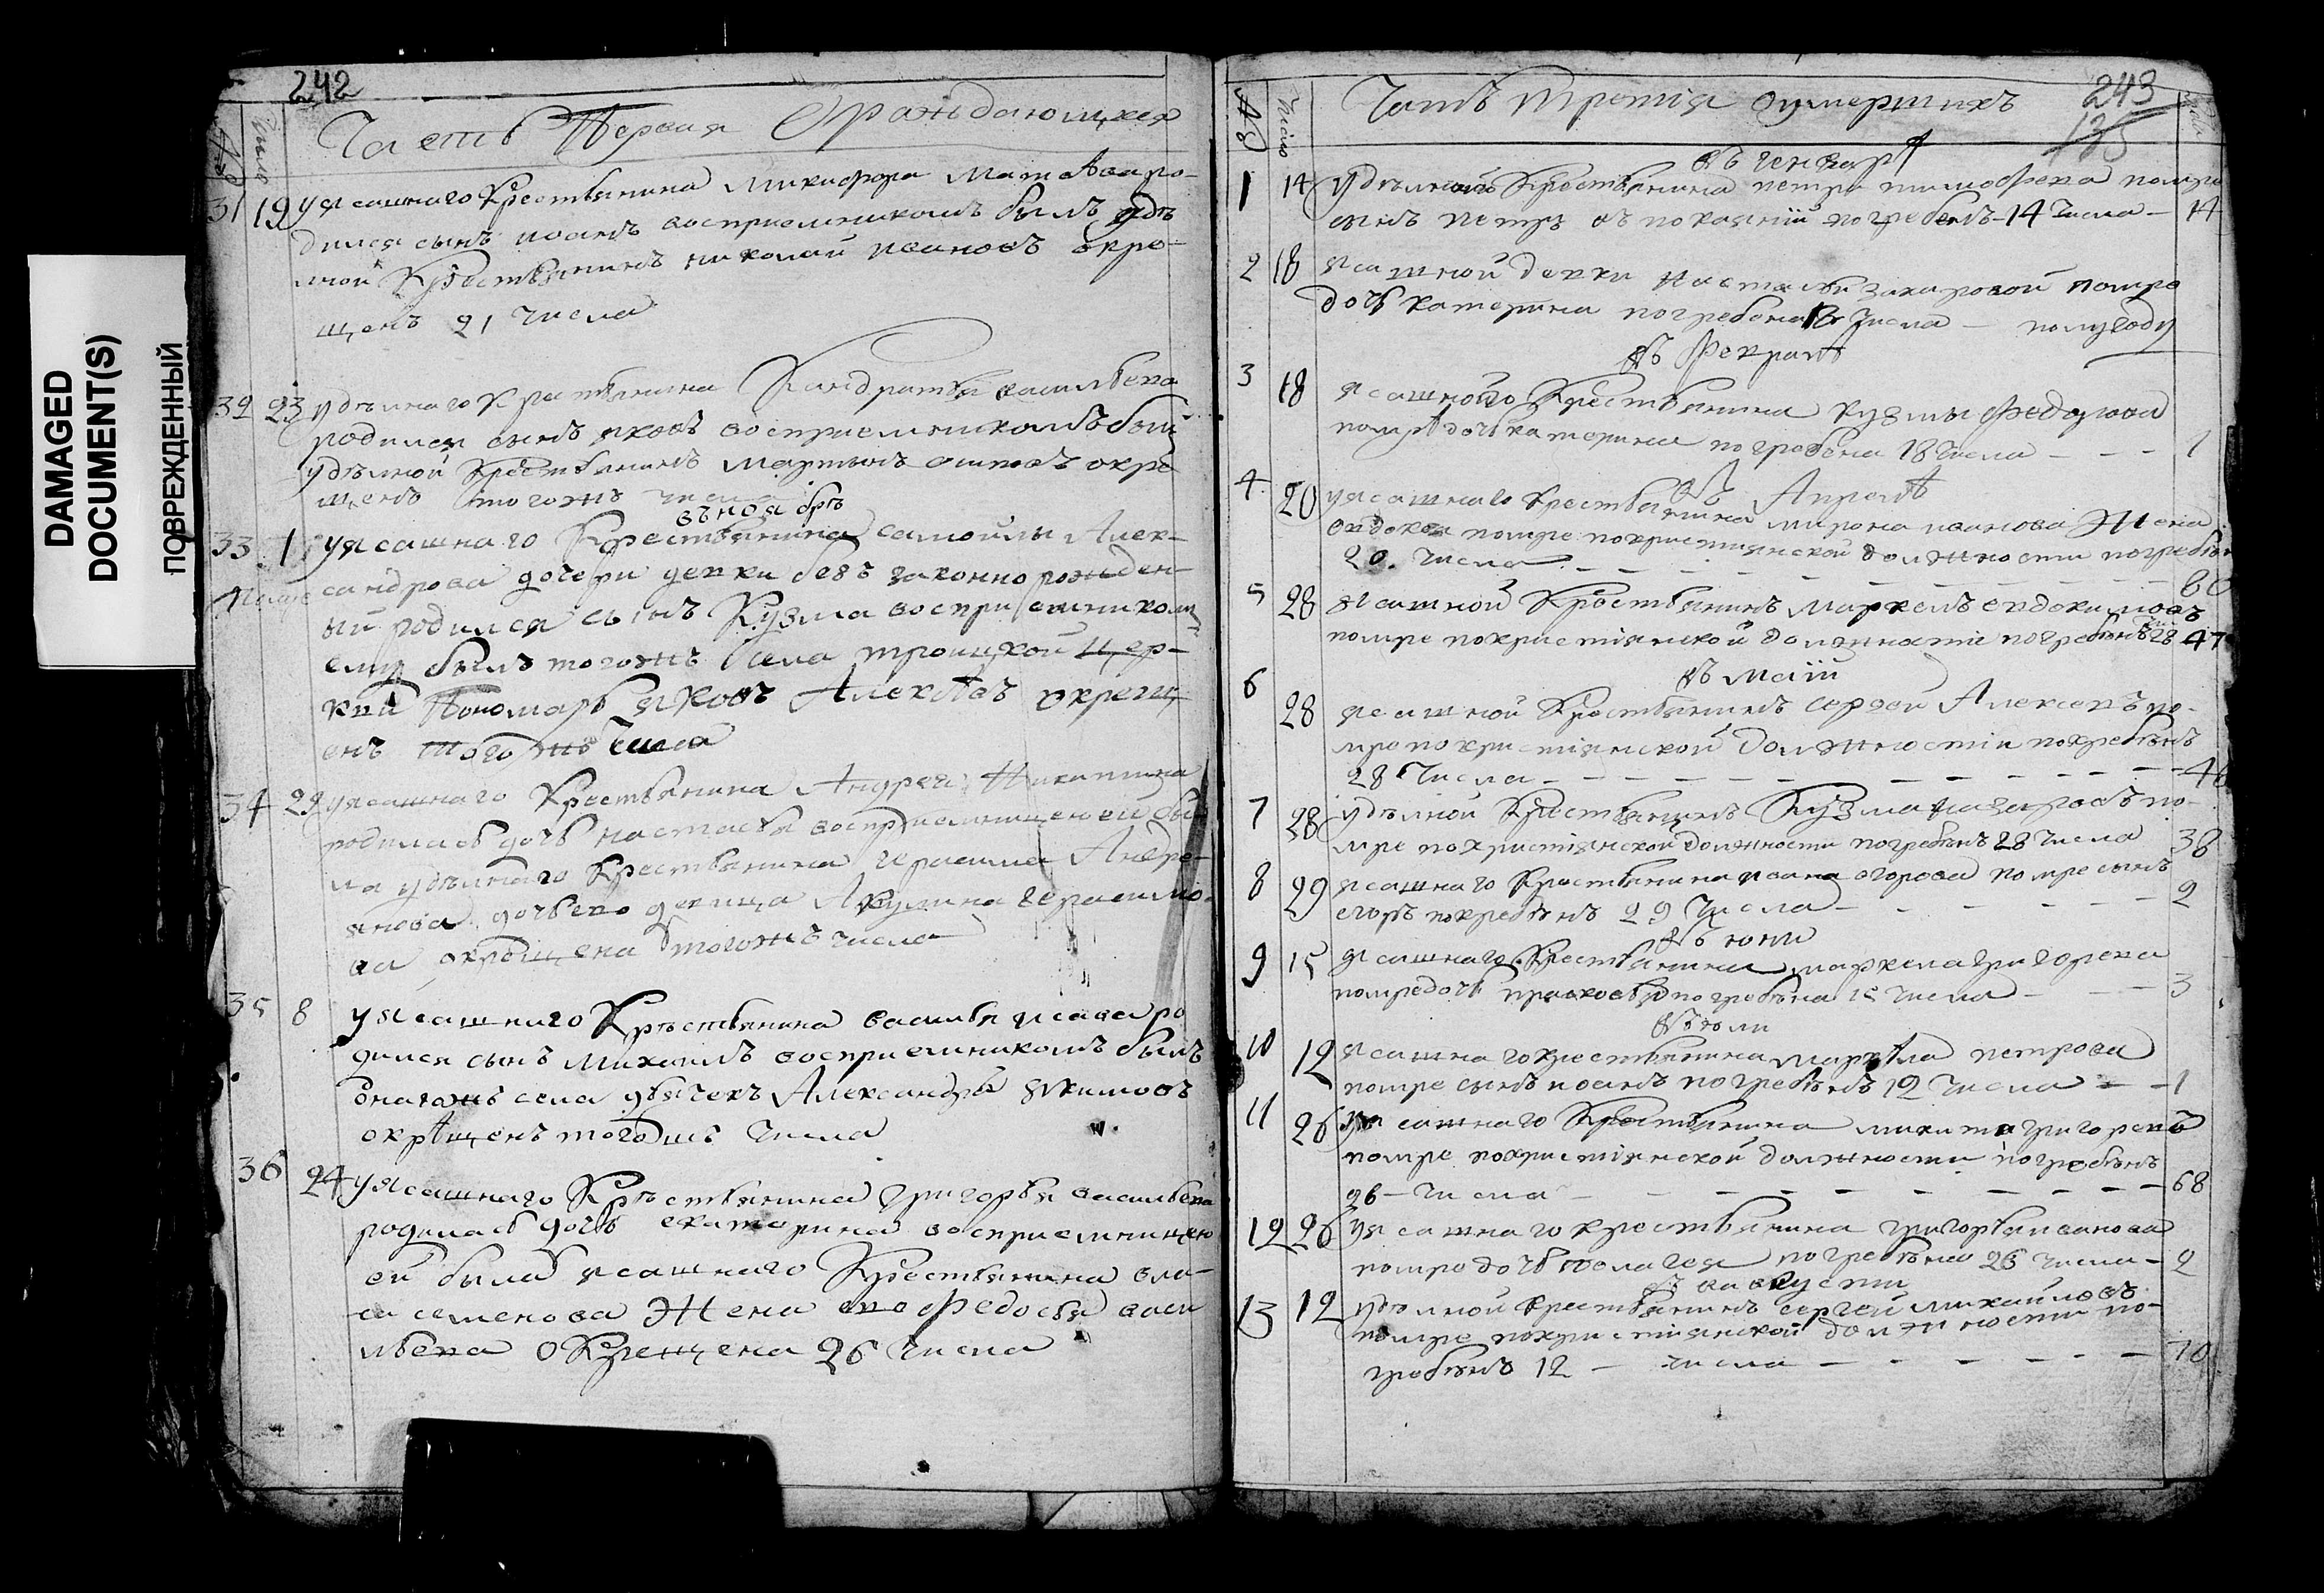 DAMAGED
DOCUMENT(S)
ПОВРЕЖДЕННЫЙ
242
Часть Первая О раждающихся
№ Число
31 19 у ясашнаго крестьянина Микифора Матѣева ро-
дился сынъ иоанъ восприемникомъ былъ удѣ
лной крестьянинъ николай ивановъ окре-
щенъ 21 числа
32 23 удѣлнаго крестьянина Кандратья васильева
родился сынъ яковъ восприемникомъ был
удѣлной крестьянинъ мартынъ окре
щенъ тогожъ числа
въ ноябрѣ
33 1 у ясашнаго крестьянина самойлы Алек-
сандрова дочери девки безъ законно рожден-
ый родился сынъ Кузма восприемником
ему былъ тогожъ села троицкой цер-
кви Пономарь яковъ Алексѣевъ окрещ
енъ того жъ числа
34 22 у ясашнаго крестьянина Андрея Никитина
родилась дочь настасья восприемницею ей бы
ла удѣлнаго крестьянина герасима Андре-
янова дочь ево девица Акулина герасимо-
ва окрещена тогожъ числа
35 8 у ясашнаго крѣстьянина василья исаева ро
дился сынъ михаилъ восприемникомъ былъ
онагожъ села дьячекъ Александръ якимовъ
окрѣщенъ тогожъ числа
36 24 у ясашнаго крѣстьянина григорья васильева
родилась дочь екатерина восприемницею
ей была ясашнаго крестьянина вла-
са семенова жена ево Федосья васи
льева окрещена 26 числа
243
135
№ Число Часть третия о умертихъ
въ генварѣ
1 14 удѣлнаго крестьянина петра тимофеева помре
сынъ петръ въ покаянiи погребенъ 14 числа — 14
2 18 ясашной девки настасьи захаровой помре
дочь катерина погребена 18 числа — полугоду
въ Феврале
3 18 ясашного крестьянина кузмы Федорова
помрѣ дочь катерина погребена 18 числа — — — 1
въ Апрелѣ
4 20 у ясашнаго крестьянина мирона иванова жена
евдокея помре похристиянской должности погребен
20 числа — — — 60
5 28 ясашной крестьянинъ маркелъ евдокимовъ
помре похристиянской должности погребенъ 28 47
въ маiи
6 28 ясашной крестьянинъ сергей Алексевъ по-
мре похристиянской должности погребѣнъ
28 числа — — — 46
7 28 удѣлной крестьянинъ Кузма назаровъ по-
мре похристиянской должности погребѣнъ 28 числа 38
8 29 ясашнаго крестьянина ивана егорова помре сынъ
егоръ погребѣнъ 29 числа — — — 2
въ юни
9 15 ясашнаго крестьянина маркела григорева
помре дочь прасковья погребѣна 15 числа — — 3
въ юли
10 12 ясашнаго крестьянина маркѣла петрова
помре сынъ иоанъ погребѣнъ 12 числа — — 1
11 26 у ясашнаго крестьянина микита григоревъ
помре похристиянской должности погребѣнъ
26 — числа — — — 68
12 26 у ясашнаго крестьянина григорья иванова
помре дочь пелагея погребѣна 26 числа — 2
въ августи
13 12 удѣлной крестьянинъ сергей михайловъ
помре похристиянской должности по-
гребѣнъ 12 — числа — — — 70